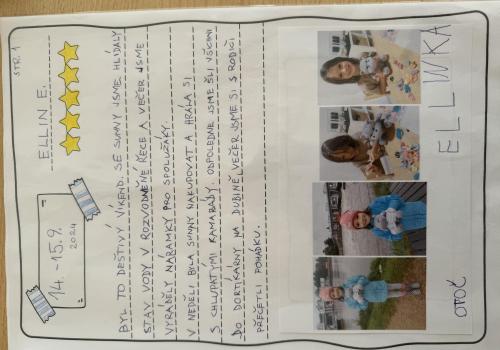 STR. 1
ELLIN E.
14. - 15.9.
2024
BYL TO DEŠTIVÝ VÍKEND. SE SUNNY JSME HLÍDALY
STAV VODY V ROZVODNĚNÉ ŘECE A VEČER JSME
VYRÁBĚLY NÁRAMKY PRO SPOLUŽÁKY.
V NEDĚLI BYLA SUNNY NAKUPOVAT A HRÁLA SI
S CHLUPATÝMI KAMARÁDY. ODPOLEDNE JSME ŠLI VŠICHNI
DO DORTIKÁRNY NA DUBINĚ. VEČER JSME SI S RODIČI
PŘEČETLI POHÁDKU.
ELLINKA
OTOČ